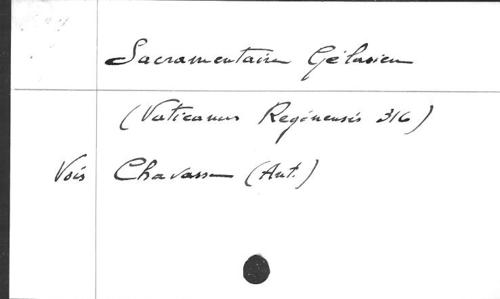 Sacramentaire Gélasien
(Vaticanus Reginensis 316)
Vois Chavasse (Ant.)